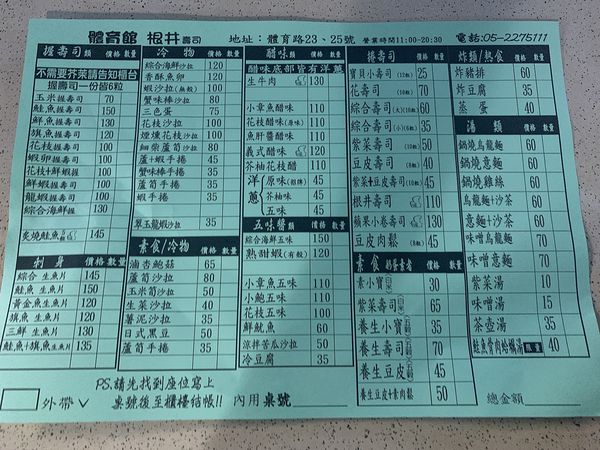 體育館 根井壽司 地址：體育路23、25號 營業時間11:00-20:30 電話:05-2275111
握壽司類 價格 數量
不需要芥茉請告知櫃台
握壽司一份皆6粒
玉米握壽司 70
鮭魚握壽司 150
鮮魚握壽司 130
旗魚握壽司 120
花枝握壽司 100
蝦卵握壽司 100
花枝+鮮蝦握 100
鮮蝦握壽司 100
龍蝦握壽司 100
綜合海鮮握 130
炙燒鮭魚 145
刺身 價格 數量
綜合 生魚片 145
鮭魚 生魚片 150
黃金魚生魚片 120
旗魚 生魚片 120
三鮮 生魚片 130
鮭魚+旗魚生魚片 135
冷物 價格 數量
綜合海鮮沙拉 120
香酥魚卵 120
蝦沙拉(無殼) 100
蟹味棒沙拉 80
三色蛋 75
花枝沙拉 100
煙燻花枝沙拉 100
細柴蘆筍沙拉 80
蘆+蝦手捲 35
蟹味棒手捲 35
蘆筍手捲 35
蝦手捲 35
翠玉龍蝦沙拉 35
素食/冷物 價格 數量
滷杏鮑菇 65
蘆筍沙拉 80
玉米筍沙拉 50
生菜沙拉 40
薯泥沙拉 35
日式黑豆 50
蘆筍手捲 35
醋味 價格 數量
醋味底部皆有洋蔥
生牛肉 130
小章魚醋味 110
花枝醋味(原味) 110
魚肝醬醋味 110
義式醋味 120
芥柚花枝醋 110
洋蔥 原味(招牌) 45
芥柚味 45
五味 45
五味醬 價格 數量
綜合海鮮五味 150
熟甜蝦(有殼) 120
小章魚五味 110
小鮑五味 110
花枝五味 100
鮮魷魚 60
涼拌苦瓜沙拉 50
冷豆腐 35
捲壽司 價格 數量
寶貝小壽司(12粒) 25
花壽司(10粒) 70
綜合壽司(大)(10粒) 60
綜合壽司(小)(6粒) 35
紫菜壽司(10粒) 50
豆皮壽司(5粒) 40
紫菜+豆皮壽司 45
根井壽司 130
蘋果小卷壽司 130
豆皮肉鬆 45
素食 奶蛋素者 價格 數量
素小寶 30
紫菜壽司 65
養生小寶 35
養生壽司 70
養生豆皮 45
養生豆皮+素肉鬆 50
炸類/熱食 價格 數量
炸豬排 60
炸豆腐 35
蒸蛋 40
湯類 價格 數量
鍋燒烏龍麵 60
鍋燒意麵 60
鍋燒雞絲 60
烏龍+沙茶 60
意麵+沙茶 60
味噌烏龍麵 60
味噌意麵 60
紫菜湯 10
味噌湯 15
茶壺湯 35
鮭魚骨肉蛤蠣湯 限量 40
外帶
PS.請先找到座位寫上
桌號後至櫃檯結帳!!
內用 桌號
總金額